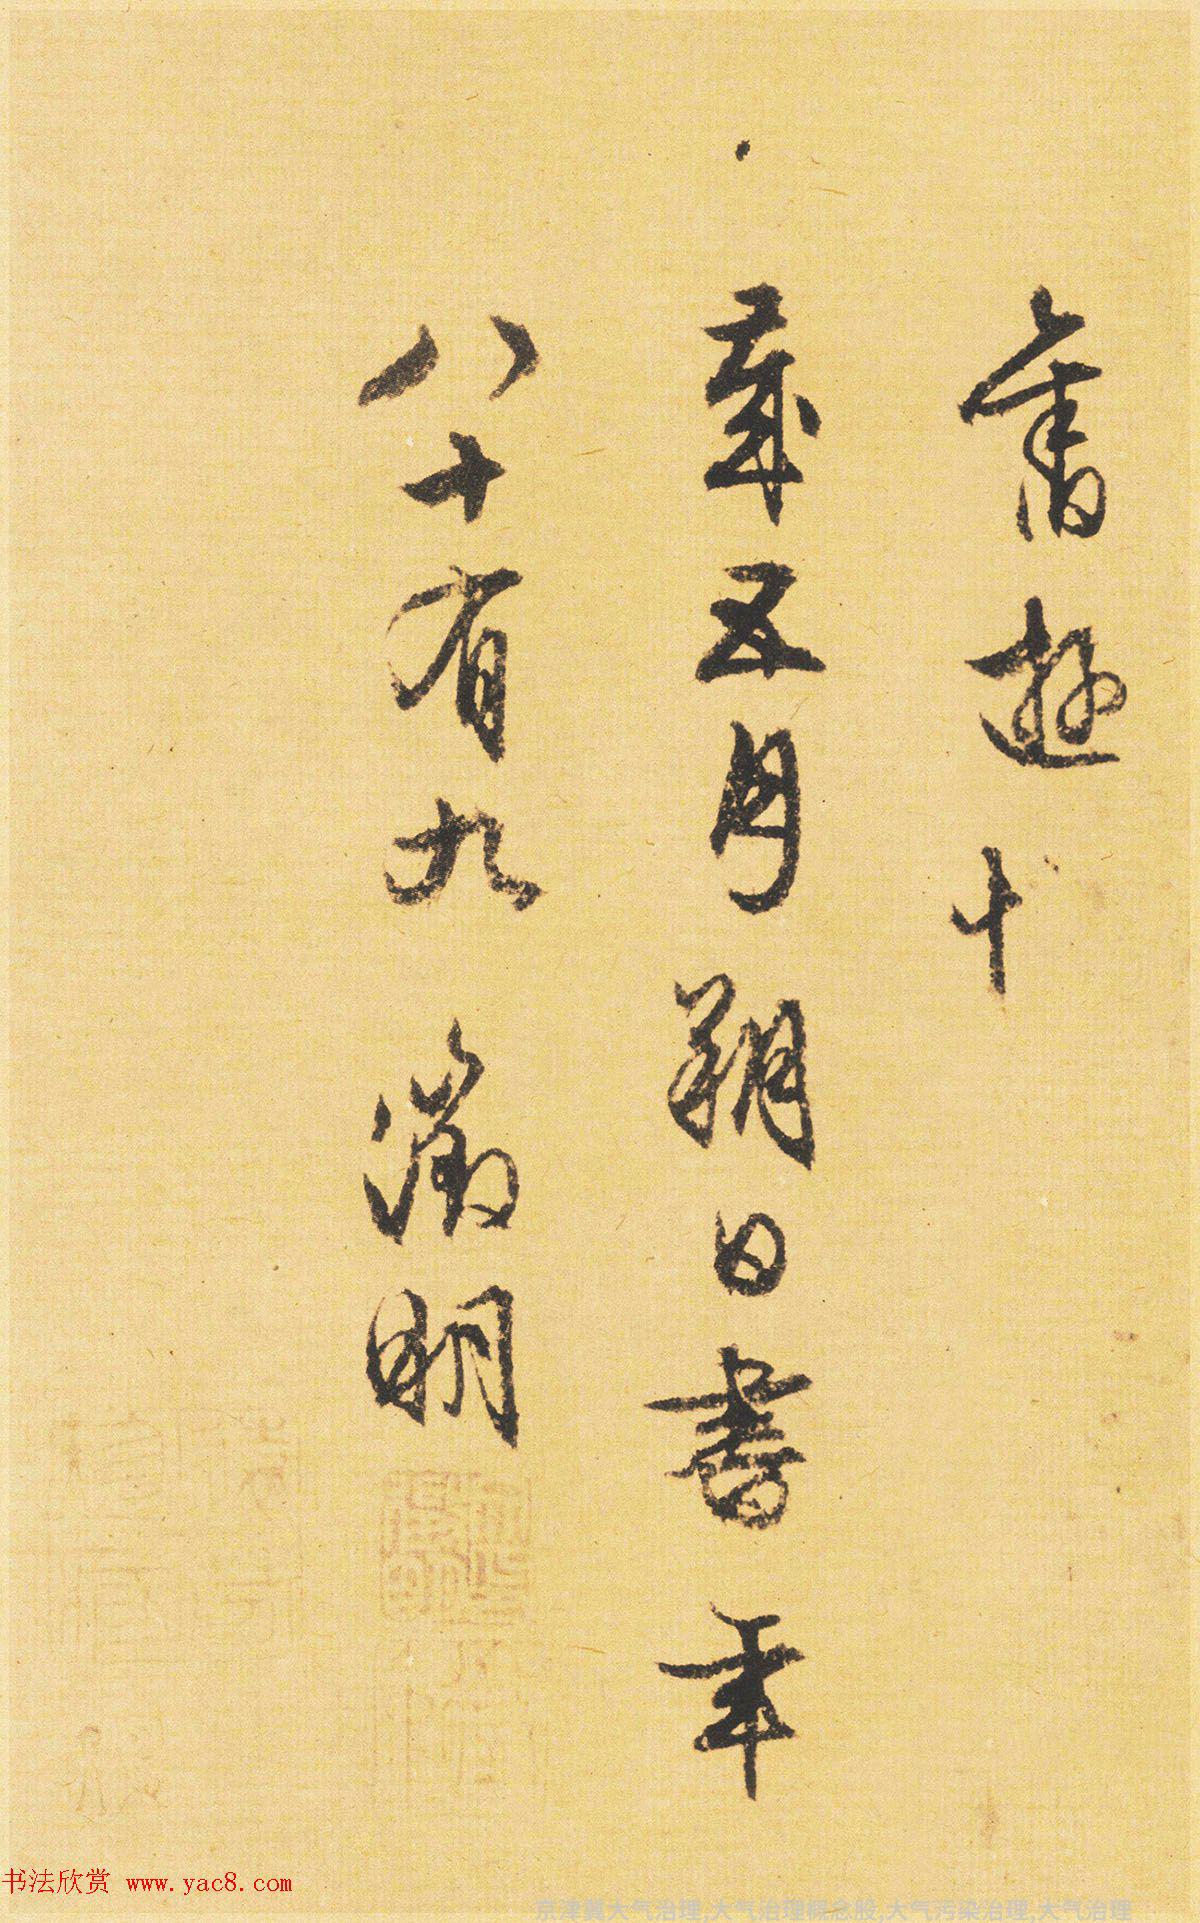 舊遊十
歲五月朔日書年
八十有九 徵明
书法欣赏 www.yac8.com
京津冀大气治理,大气治理概念股,大气污染治理,大气治理